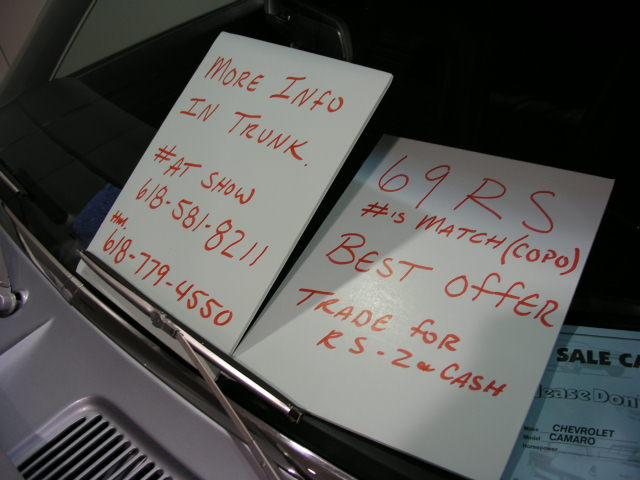 MORE INFO
IN TRUNK.
# AT SHOW
618-581-8211
HM
618-779-4550
69 RS
#is MATCH (COPO)
BEST OFFER
TRADE FOR
RS-Z & CASH
SALE
Please Don
Make CHEVROLET
Model CAMARO
Horsepower